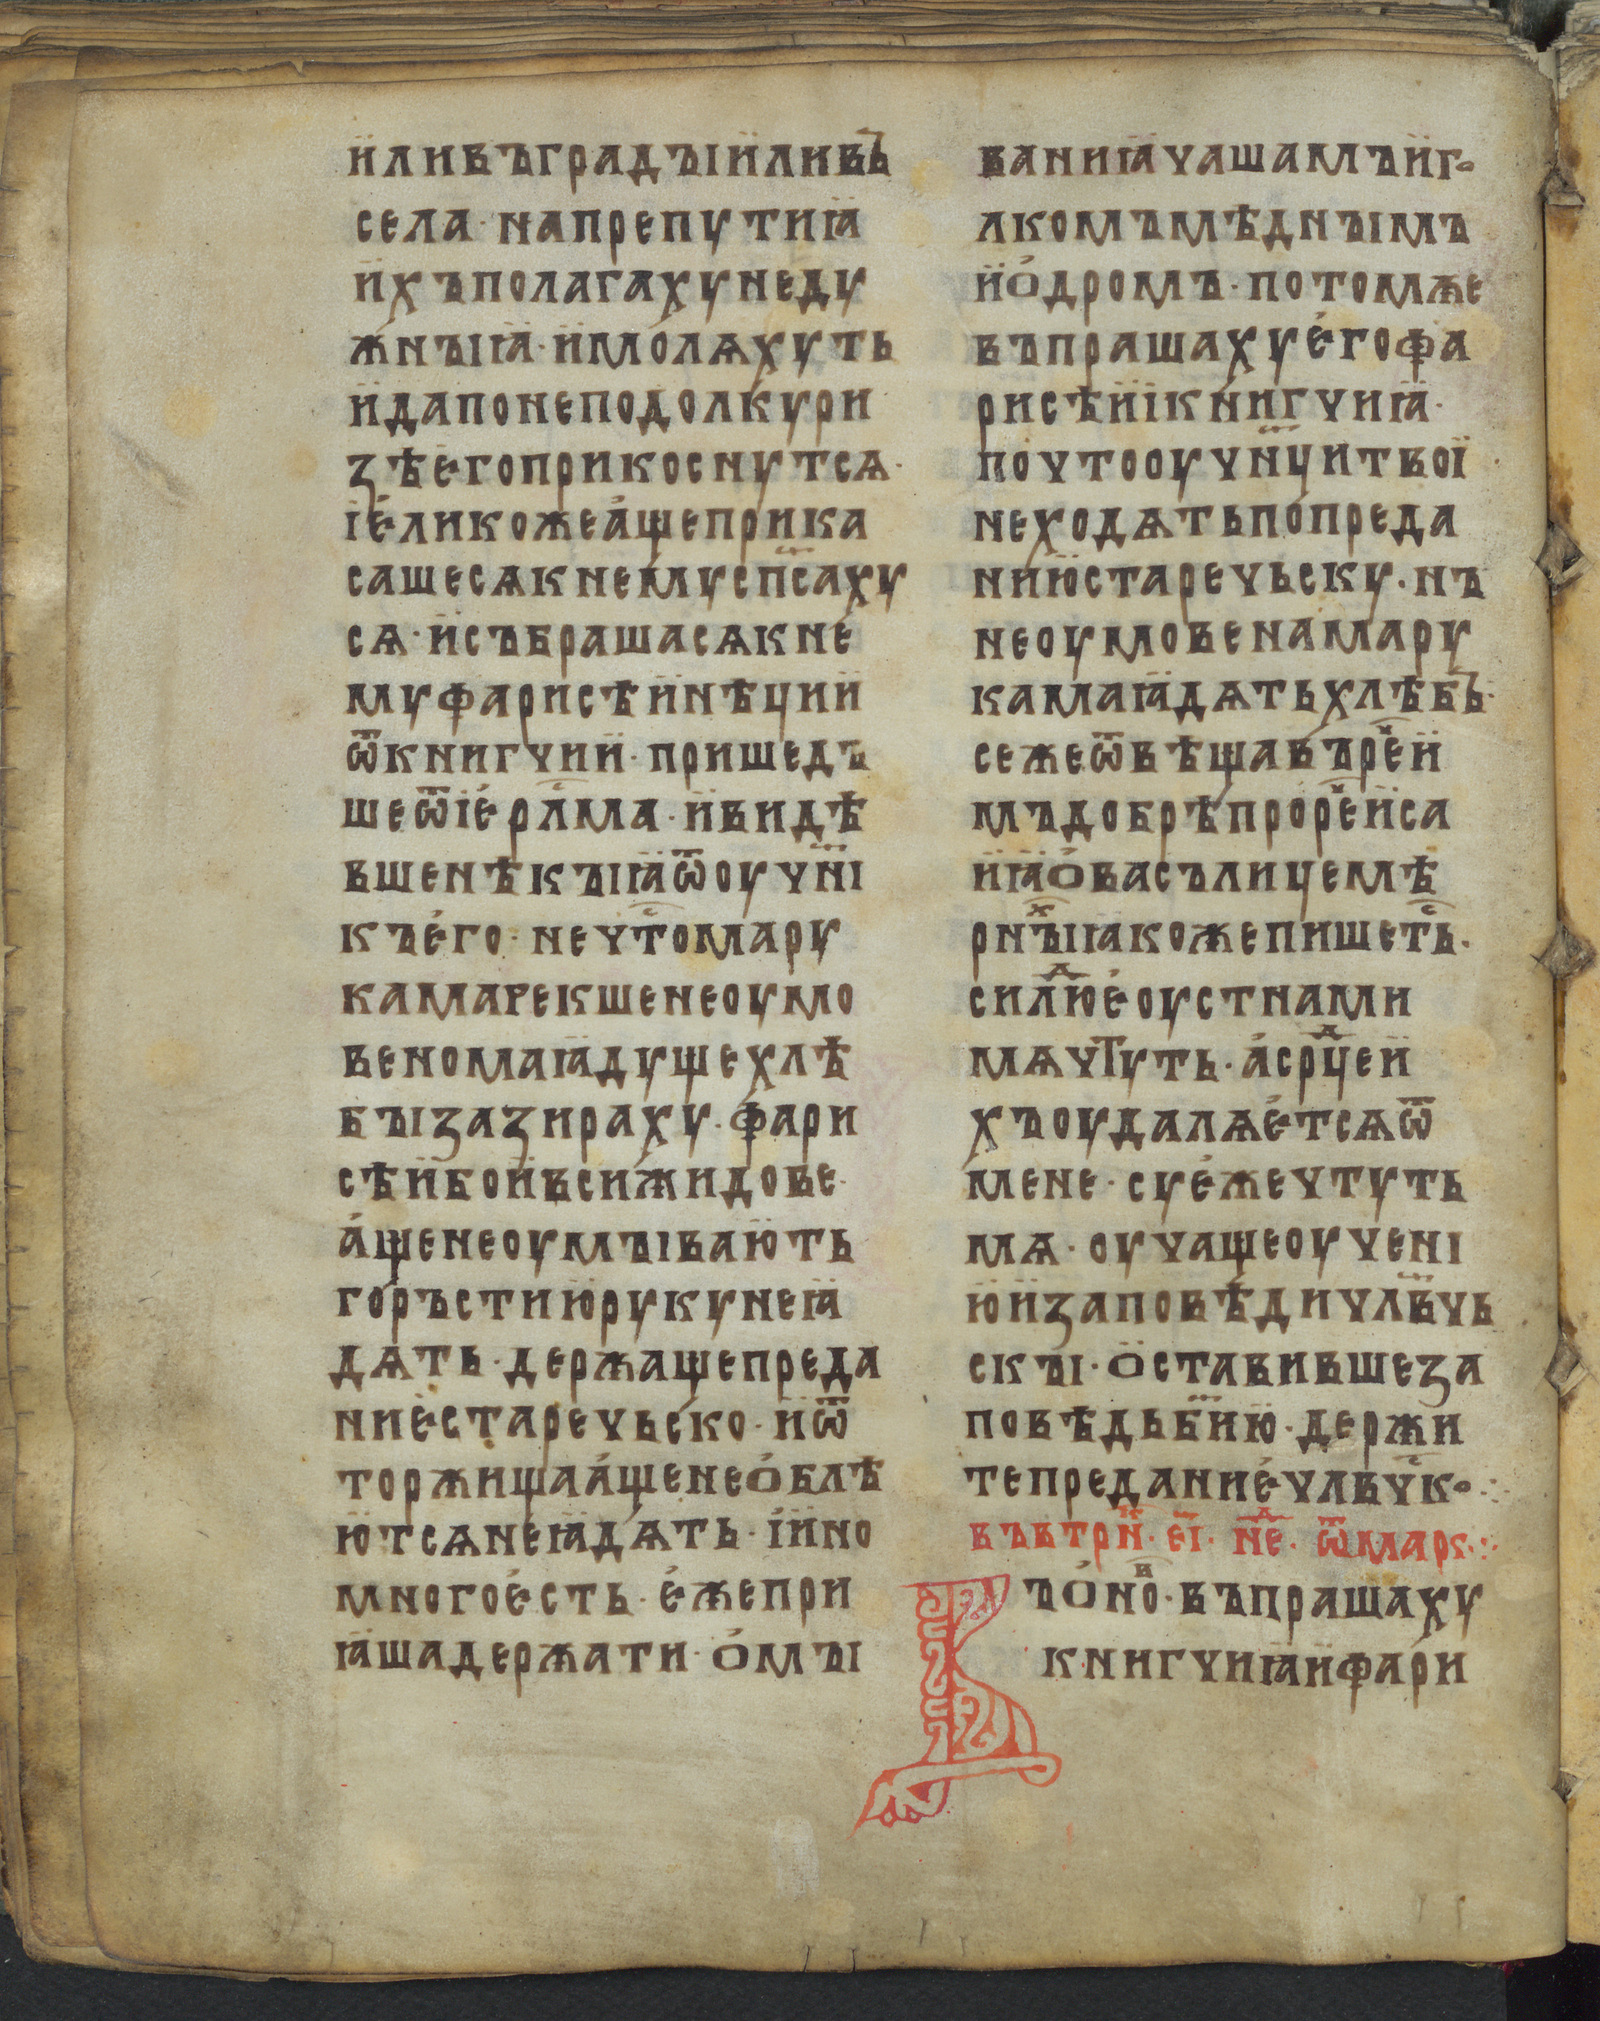 и҆ливъградъıи҆ливъ
села·напрепутиꙗ
и҆хъполагахунеду
жнъıꙗ·и҆молѧхуть
и҆дапонеподолкури
зѣѥгоприкоснутсѧ·
іеликожеащеприка
сашесѧкнемусп҃саху
сѧ·и҆събрашасѧкне
муфарисѣи҆нѣции҆
ѿкнигчии҆·пришедъ
шеѿіерⷭ҇лма·и҆видѣ
вшенѣкъıꙗѿоучн҃і
къего·нечтⷭ҇омару
камарекшенеоумо
веномаꙗдущехлѣ
бъıзазираху·фари
сѣи҆бои҆всижидове·
ащенеоумъıвають
горъстиюрукунеꙗ
дѧть·держащепреда
ниестаречьско·и҆ѿ
торжищаащенеоблѣ
ютсѧнеꙗдѧть·іи҆но
многоесть·ежепри
ꙗшадержати·омъı
ваниꙗчашамъи҆го
лкомъмѣднъıмъ
и҆одромъ·потомже
въпрашахуегофа
рисѣи҆ікнигчиꙗ·
почтооучн҃цитвоі
неходѧтьпопреда
ниюстаречьску·нъ
неоумовенамару
камаꙗдѧтьхлѣбъ·
сежеѿвѣщавъреⷱ҇и҆
мъдобрѣпророⷱ҇еи҆са
и҆ꙗовасълицемѣ
рнⷯъıꙗкожепишетьⷭ҇·
силюⷣеоустнами
мѧчтуть·асрⷣцеи҆
хъоудалѧетсѧѿ
мене·суежечтуть
мѧ·оучащеоучені
юи҆заповѣдичл҃вчь
скъı·оставившеза
повѣдьб҃ию·держи
тепреданиечлвчⷭ҇ко·:
въвторнⷦ҇·еі·неⷣ·ѿмарк·:
Въоноⷡ·въпрашаху
книгчиꙗи҆фари